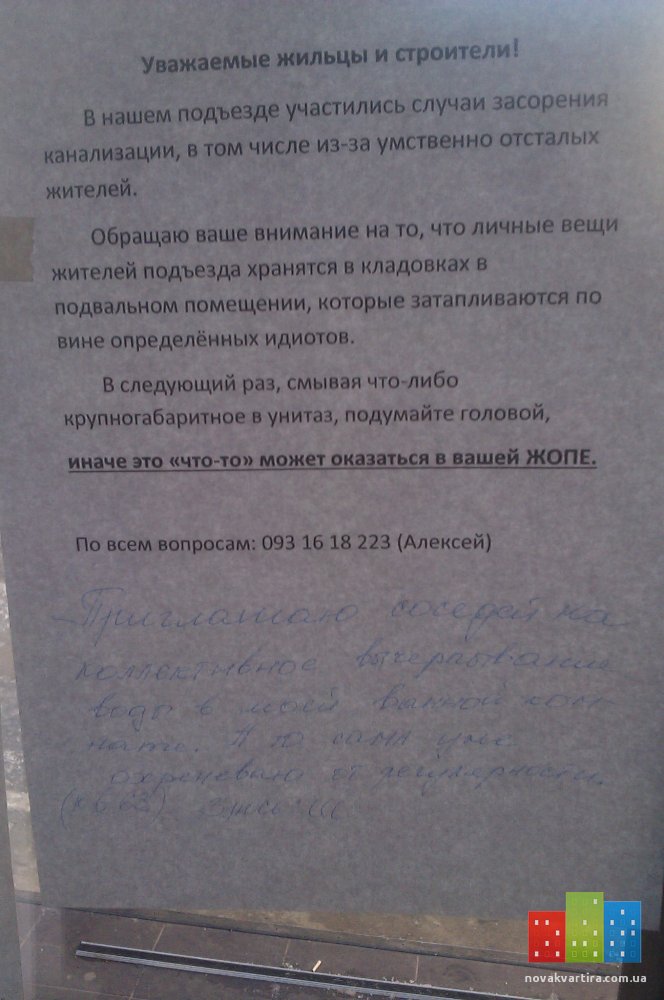 Уважаемые жильцы и строители!
В нашем подъезде участились случаи засорения
канализации, в том числе из-за умственно отсталых
жителей.
Обращаю ваше внимание на то, что личные вещи
жителей подъезда хранятся в кладовках в
подвальном помещении, которые затапливаются по
вине определённых идиотов.
В следующий раз, смывая что-либо
крупногабаритное в унитаз, подумайте головой,
иначе это «что-то» может оказаться в вашей ЖОПЕ.
По всем вопросам: 093 16 18 223 (Алексей)
Приглашаю соседей на
коллективное вычерпывание
воды в моей ванной ком-
нате. А то сама уже
охреневаю от регулярности.
novakvartira.com.ua